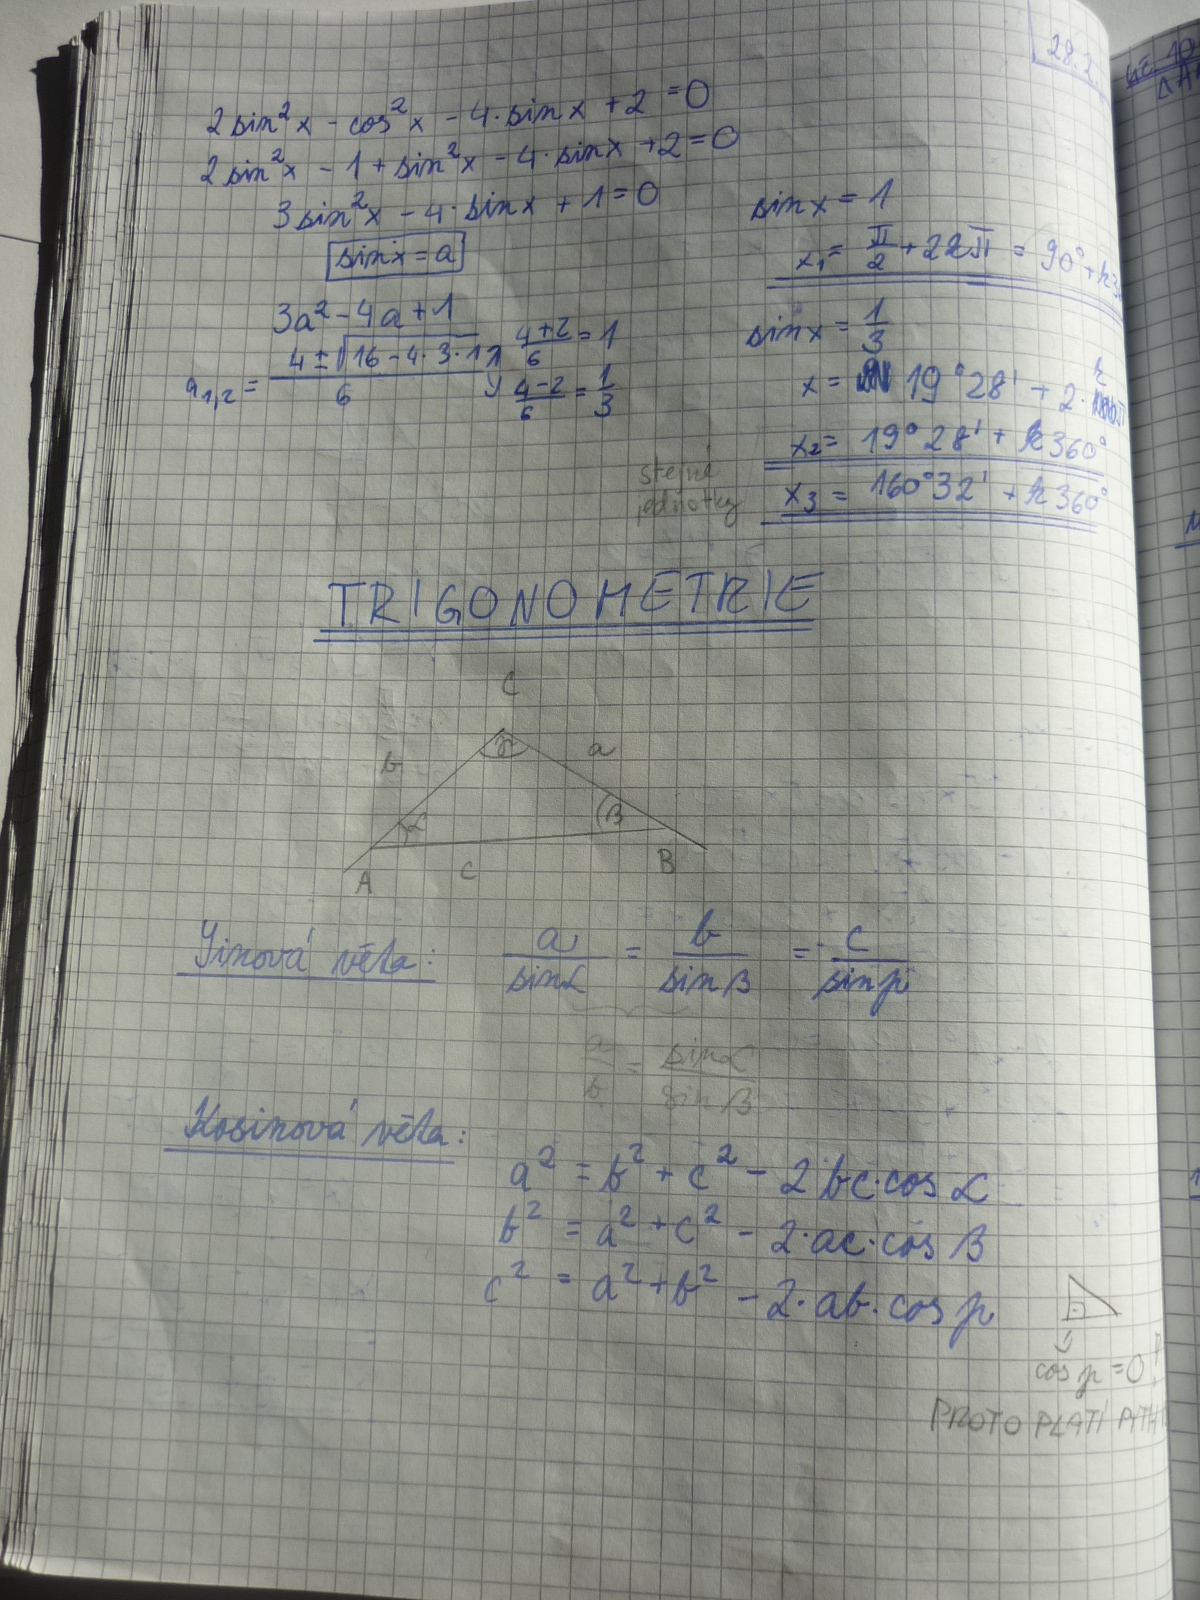 28.2.
2sin²x - cos²x - 4·sinx + 2 = 0
2sin²x - 1 + sin²x - 4·sinx + 2 = 0
3sin²x - 4·sinx + 1 = 0
sinx = a
3a² - 4a + 1
a₁,₂ = (4 ± √(16 - 4·3·1))/6
(4+2)/6 = 1
(4-2)/6 = 1/3
sinx = 1
x₁ = π/2 + 2kπ = 90° + k36
sinx = 1/3
x = 19°28' + 2·
x₂ = 19°28' + k360°
x₃ = 160°32' + k360°
stejné
jednotky
TRIGONOMETRIE
C
γ
b
a
α
β
A
c
B
Sinová věta: a/sinα = b/sinβ = c/sinγ
a/b = sinα/sinβ
Kosinová věta:
a² = b² + c² - 2bc·cosα
b² = a² + c² - 2·ac·cosβ
c² = a² + b² - 2·ab·cosγ
cosγ = 0
PROTO PLATÍ PYTH